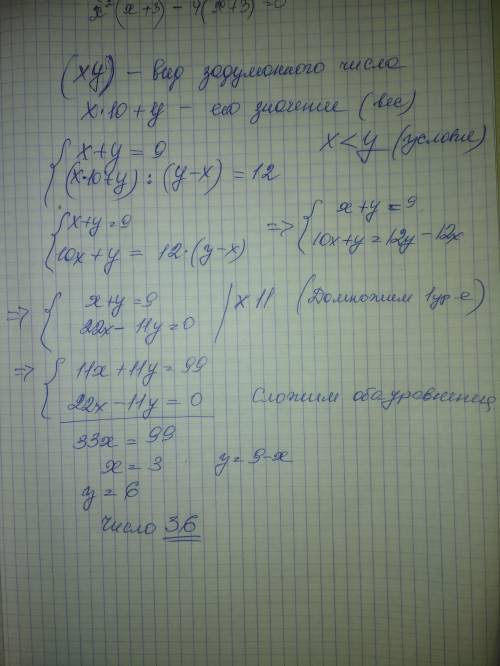 x²(x+3) - 4(x+3) = 0
(xy) - вид задуманного числа
x·10 + y - его значение (вес)
x < y (условие)
{ x+y = 9
(x·10+y) : (y-x) = 12
{ x+y = 9
10x + y = 12·(y-x)
=> { x+y = 9
10x+y = 12y - 12x
=> { x+y = 9
22x - 11y = 0 | x 11 (Домножим 1 ур-е)
=> { 11x + 11y = 99
22x - 11y = 0 Сложим оба уравнения
33x = 99
x = 3 y = 9-x
y = 6
Число 36